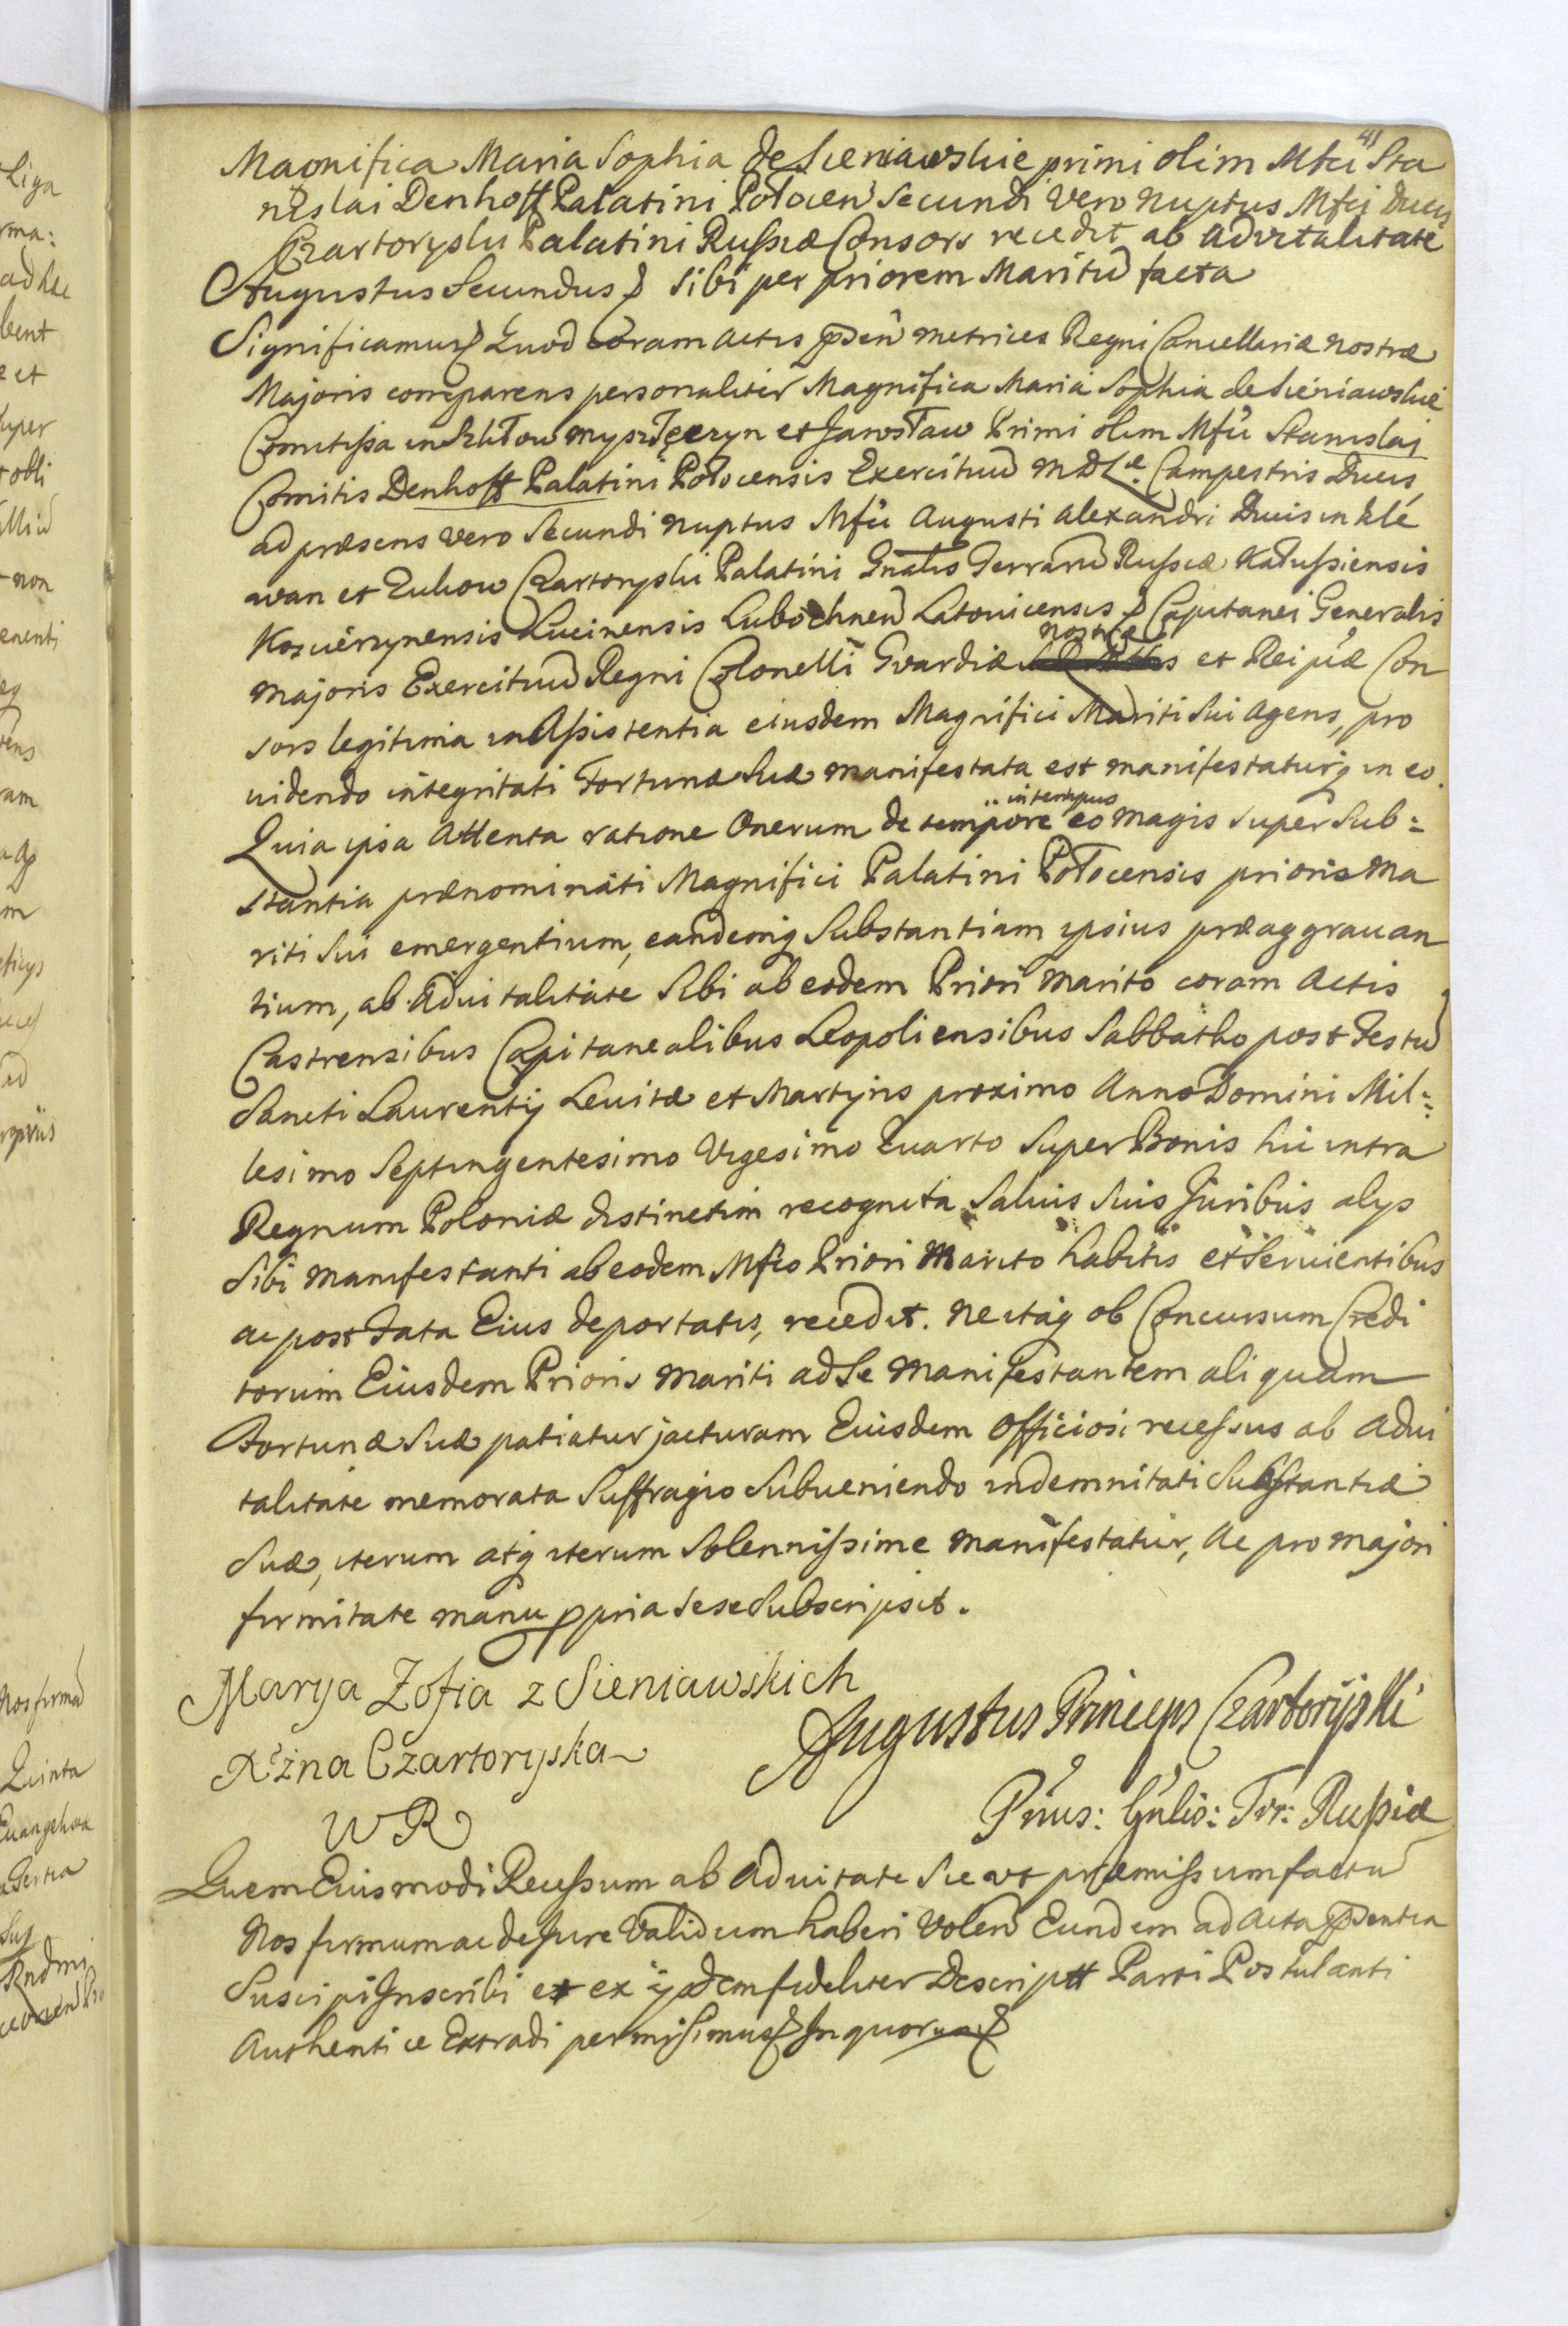 41
Magnifica Maria Sophia de Sieniawskie primi olim Mfci Sta
nislai Denhoff Palatini Połocen Secundi vero nuptus Mfci Ducis
Czartoryski Palatini Russiæ Consors recedit ab advitalitate
Augustus Secundus sibi per priorem Maritū facta
Significamus Quod coram actis pnden metrices Regni Cancellariæ nostræ
Majoris comparens personaliter Magnifica Maria Sophia de Sieniawskie
Comitissa in Szkłow mysz Tęczyn et Jarosław Primi olim Mfci Stanislai
Comitis Denhoff Palatini Połocensis Exercituū M D L æ. Campestris Ducis,
ad præsens vero Secundi nuptus Mfci Augusti Alexandri Ducis in kle
wan et Zukow Czartoryski Palatini Gnalis Terrarū Russiæ Kałussiensis
Koscierzynensis Lucinensis Lubochnen Latovicensis Capitanei Generalis
nostræ
majoris Exercituū Regni Colonelli Gvardiæ et Reipcæ Con
sors legitima in Assistentia eiusdem Magnifici Mariti sui agens, pro
uidendo integritati Fortunæ Suæ manifestata est manifestaturq in eo.
in tempus
Quia ipsa Attenta ratione Onerum de tempore eo magis super Sub:
stantia prænominati Magnifici Palatini Połocensis prioris Ma
riti sui emergentium, eandemq Substantiam ipsius præaggrauan
tium, ab Aduitalitate Sibi ab eodem Priori Marito coram Actis
Castrensibus Capitanealibus Leopoliensibus Sabbatho post Festū
Sancti Laurentij Leuitæ et Martyris proximo Anno Domini Mil:
lesimo Septingentesimo Vigesimo Quarto Super Bonis hic intra
Regnum Poloniæ distinctim recognita Saluis Suis Juribus alys
Sibi manifestanti ab eodem Mfco Priori Marito habitis et Seruientibus
ac post Fata Eius deportatis, recedit. ne itaq ob Concursum Credi
torum Eiusdem Prioris Mariti ad Se manifestantem aliquam
Fortunæ Suæ patiatur jacturam Eiusdem Officiosi recessus ab Advi
talitate memorata Suffragio Subueniendo indemnitati Substantiæ
Suæ, iterum atq iterum Solennissime manifestatur, Ac pro majori
firmitate manu ppria sese Subscripsit.
Marya Zofia z Sieniawskich
Xżna Czartoryska
WR
Augustus Princeps Czartoryski
Pnus: Gnlis: Trr: Russiæ
Quem Eiusmodi Recessum ab Aduitate Sic ut præmissum factū
Nos firmum ac de Jure Validum haberi Volen Eundem ad Acta pnsentia
Suscipi Inscribi et ex ijsdem fideliter Descriptt Parti Postulanti
Authentice Extradi permisimus In quorum